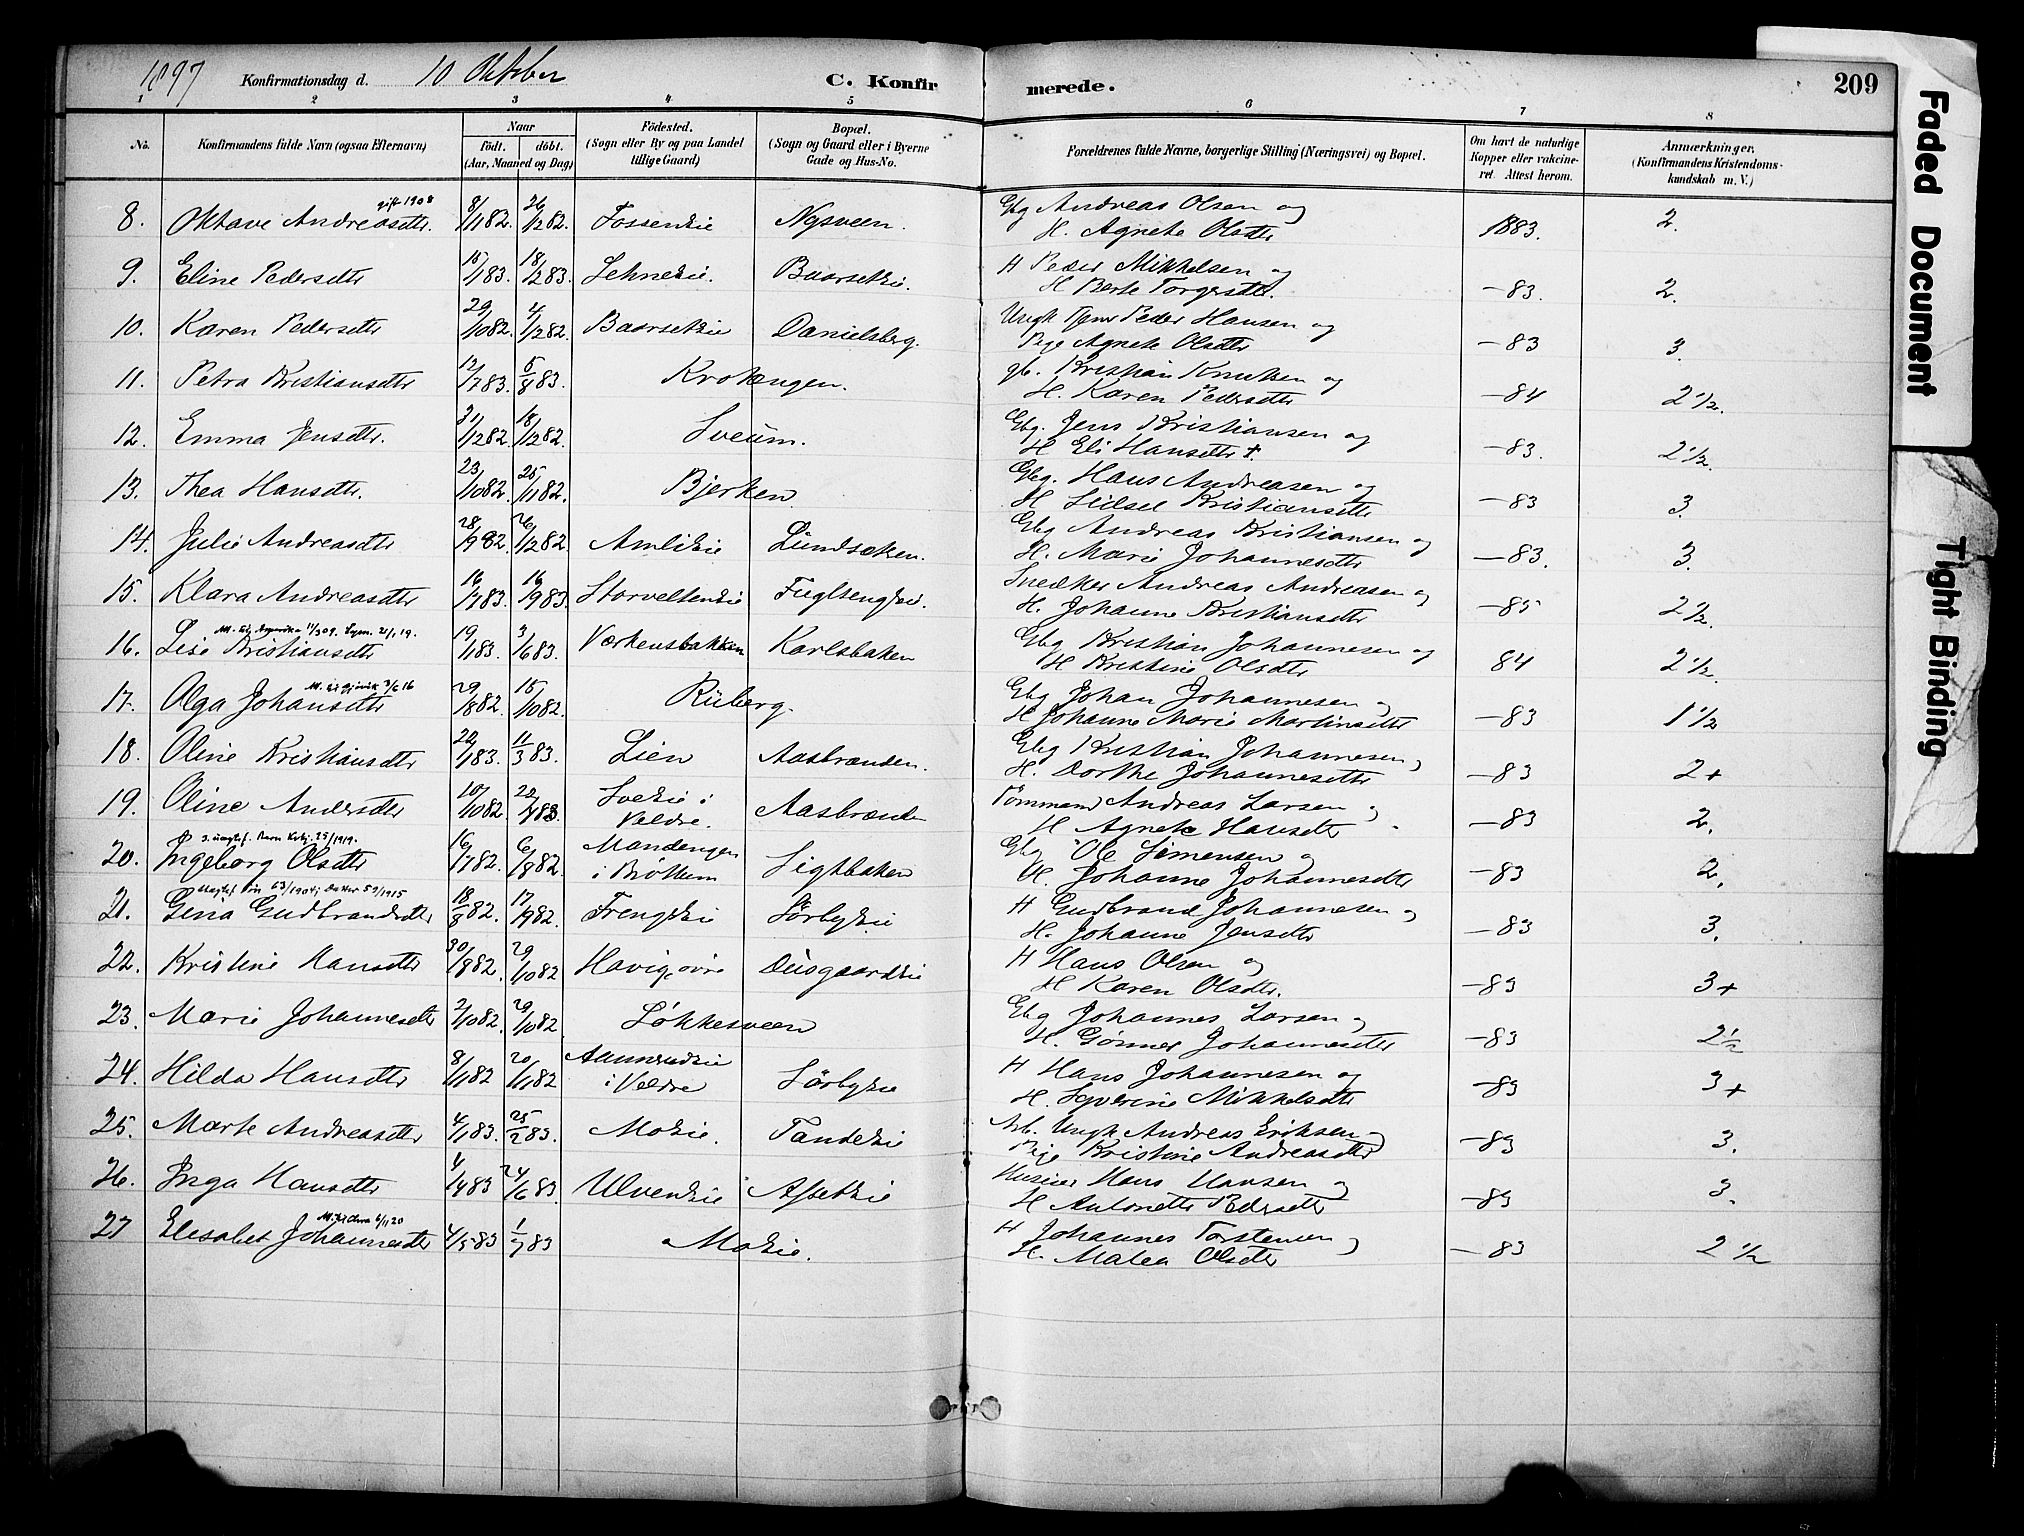 1897 Konfirmationsdag d. 10 Oktober C. Konfirmerede. 209
1 2 3 4 5 6 7 8
No. Konfirmandens fulde Navn (ogsaa Efternavn) Naar Födt. döbt. (Aar, Maaned og Dag) Födested. (Sogn eller By og paa Landet tillige Gaard) Bopæl. (Sogn og Gaard eller i Byerne Gade og Hus-No. Forældrenes fulde Navne, borgerlige Stilling (Næringsvei) og Bopæl. Om havt de naturlige Kopper eller vakcineret. Attest herom. Anmærkninger, (Konfirmandens Kristendomskundskab m. V.)
gift 1908
8. Oktave Andreasdtr. 8/1182. 26/1282. Fosseneie Nysveen. Gbg Andreas Olsen og
H. Agnete Olsdtr 1883. 2.
9. Eline Pedersdtr 15/183. 18/283. Lehneeie. Baarseteie. H Peder Mikkelsen og
H Berte Torgersdtr. —83. 2.
10. Karen Pedersdtr 29/1082. 4/1282. Baarseteie Danielsberg. Ungk Tjener Peder Hansen og
Pige Agnete Olsdtr —83 3.
11. Petra Kristiansdtr 12/783. 5/883. Krokengen. gb. Kristian Knutsen og
H. Karen Pedersdtr —84 2 1/2.
12. Emma Jensdtr. 31/1282. 18/1282. Sveum. Gbg. Jens Kristiansen og
H Eli Hansdtr †. —83. 2 1/2.
13. Thea Hansdtr. 23/1082. 25/1182. Bjerken Gbg. Hans Andreasen og
H Sidsel Kristiansdtr —83 3.
14. Julie Andreasdtr 28/982. 26/1282. Amlieie Lundsæken. Gbg Andreas Kristiansen og
H. Marie Johannesdtr —83. 3.
15. Klara Andreasdtr 16/783. 16/983. Storvelteneie Fuglsengeie. Snedker Andreas Andreasen og
H. Johanne Kristiansdtr —85 2 1/2.
M. til Amerika 11/309.
16. Lise Kristiansdtr 19/183. 3/683. Værkensbakken Karlsbaken Gbg Kristian Johannesen og
H Kristine Olsdtr 84 2 1/2.
M. til Gjøvik 3/6 16
17. Olga Johansdtr 29/882. 15/1082. Ruberg. Gbg Johan Johannesen og
H Johanne Marie Martinsdtr —83 1 1/2
18. Oline Kristiansdtr 20/183. 11/383. Lien Aasbrænden. Gbg Kristian Johannesen,
H. Dorthe Johannesdtr —83 2+
19. Oline Andersdtr 10/1082. 22/483 Sveeie i Veldre. Aasbrænden Tømmermand Andreas Larsen og
H Agnete Hansdtr —83 2.
20. Ingeborg Olsdtr 16/782. 6/882. Mandengen i Brøttum Sigtbaken Gbg Ole Simensen og
H. Johanne Johannesdtr —83 2.
21. Gina Gudbrandsdtr 18/882. 17/982. Frengeie Sörbyeie H Gudbrand Johannesen og
H. Johanne Jensdtr —83 3.
22. Kristine Hansdtr 30/882. 29/1082. Havig øvre Dusgaardeie H Hans Olsen og
H Karen Olsdtr. —83 3+
23. Marie Johannesdtr 2/1082. 29/1082. Løkkesveen Gbg Johannes Larsen og
H. Gønner Johannesdtr —83 2 1/2
24. Hilda Hansdtr 8/1182 20/1182. Aanerudeie i Veldre Sörbyeie H Hans Johannesen og
H. Syverine Mikkelsdtr —83 3+
25. Marte Andreasdtr 4/183. 25/283. Moeie. Tandeeie Arb. Ungk Andreas Eriksen og
Pige Kristine Andreasdtr —83 3.
26. Inga Hansdtr 1/483 24/683. Ulveneie Afseteie Huseier Hans Hansen og
H Antonette Pedersdtr —83 3.
27 Elesabet Johannesdtr 4/583 1/783 Moeie. H Johannes Torstensen og
H. Malea Olsdtr —83 2 1/2
Faded Document
Tight Binding